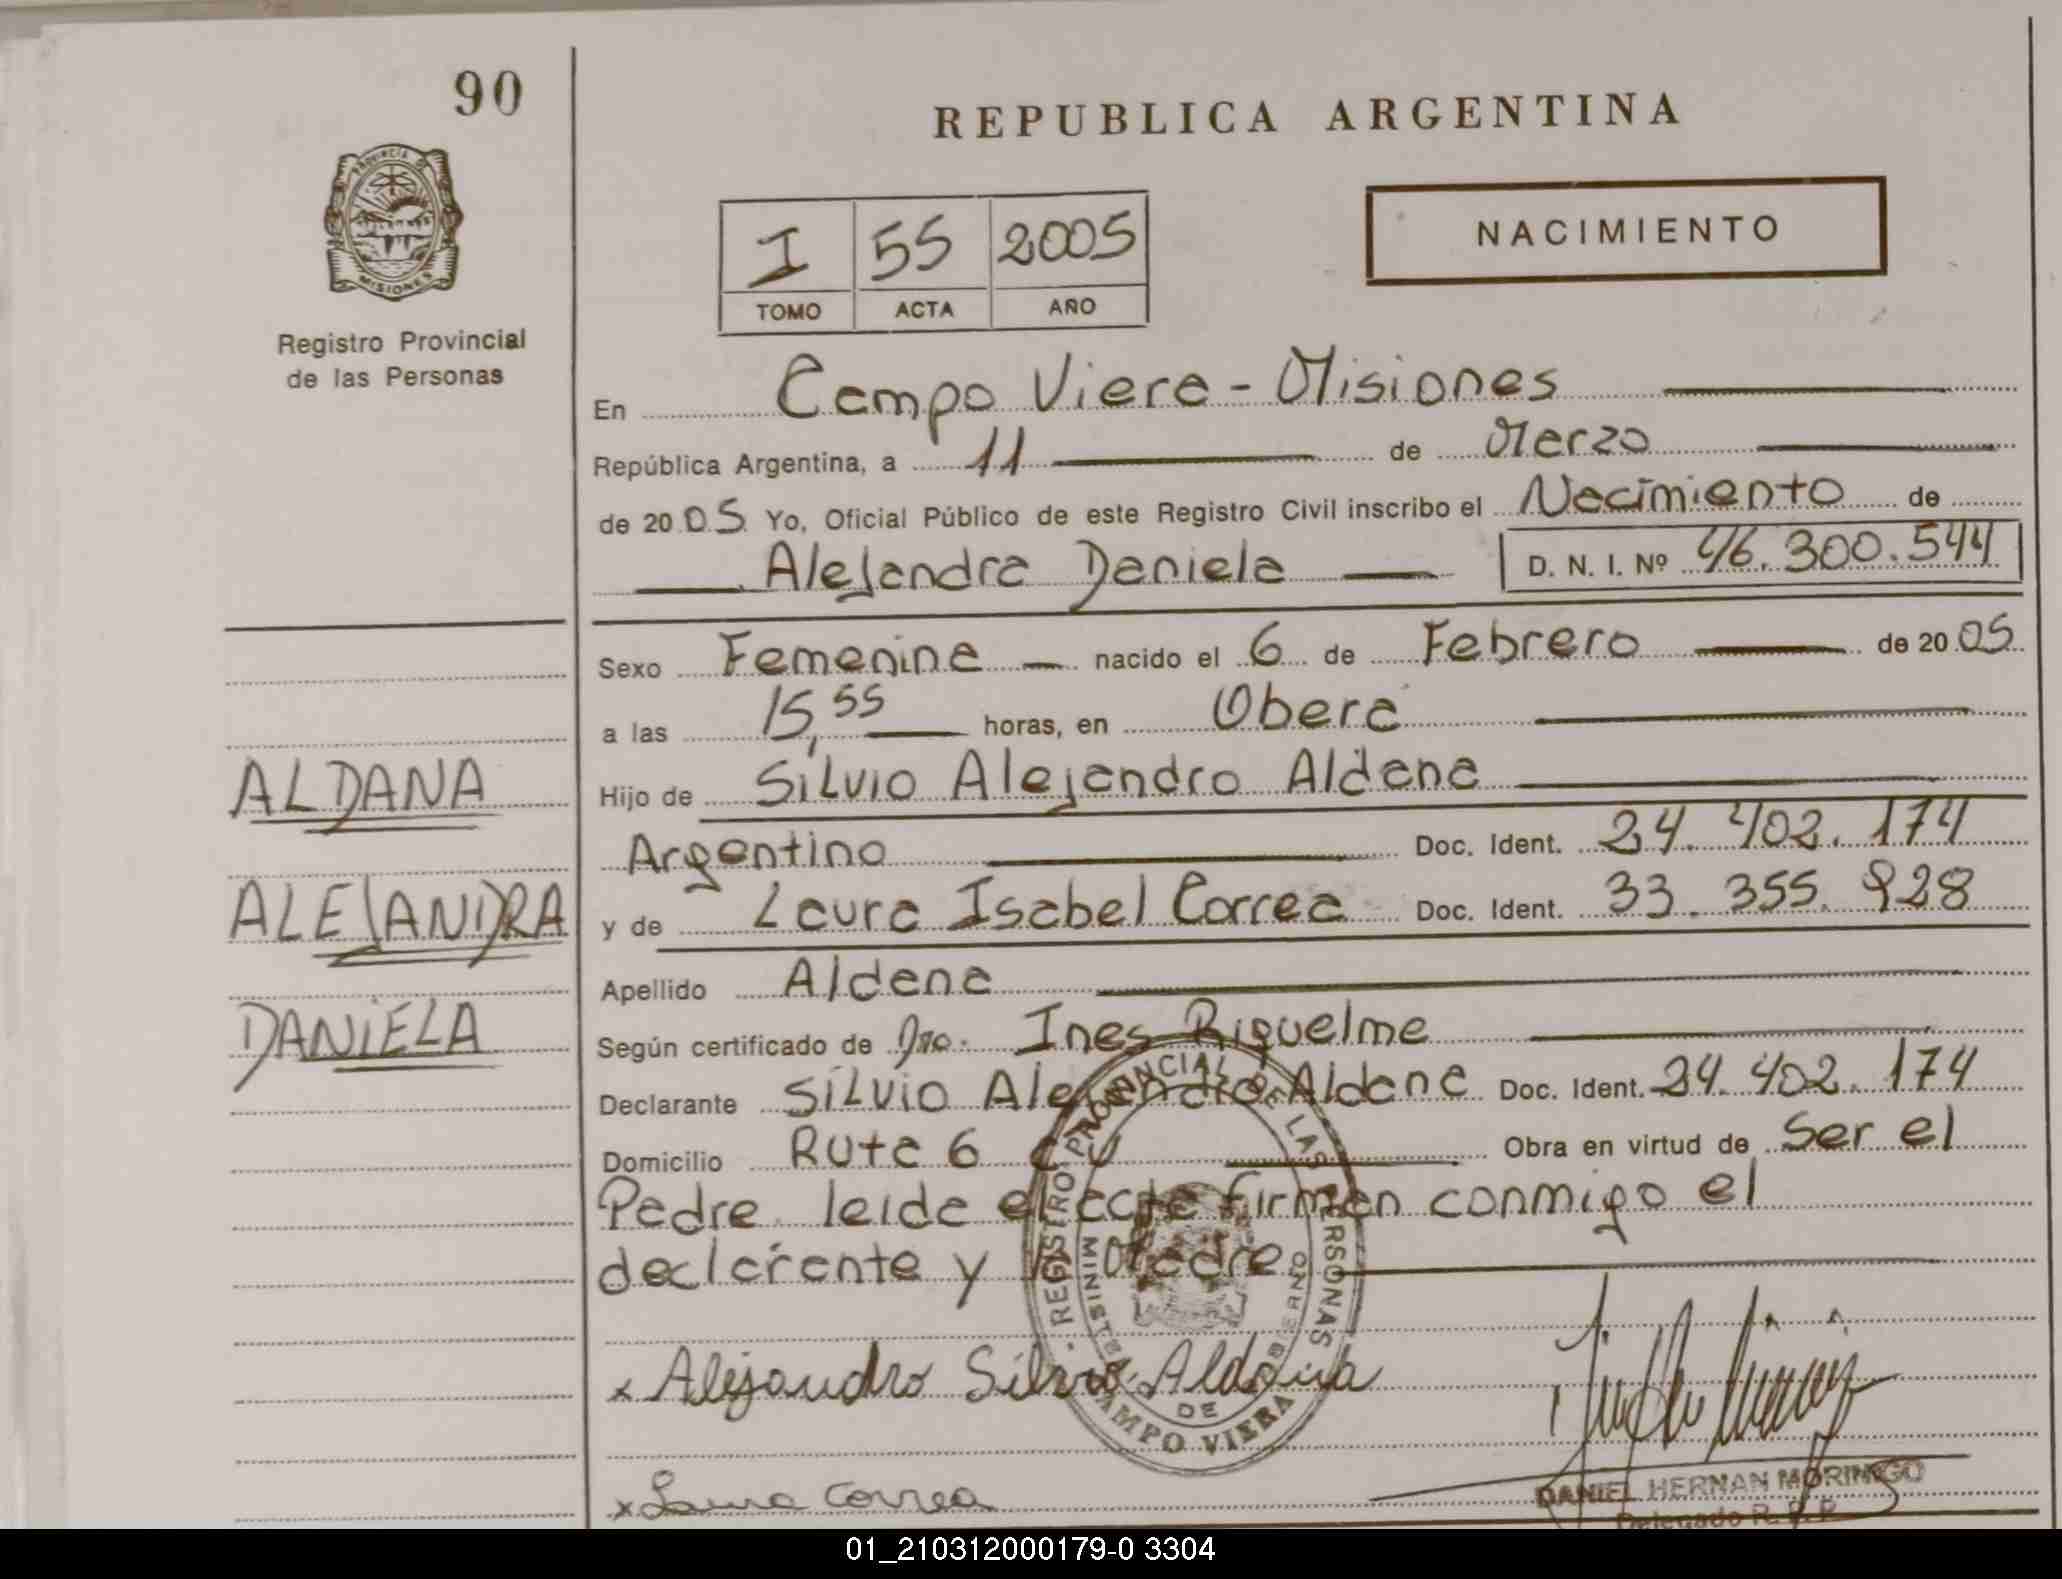 90
REPUBLICA ARGENTINA
PROVINCIA DE
MISIONES
NACIMIENTO
I 55 2005
TOMO ACTA AÑO
Registro Provincial
de las Personas
En Campo Viera - Misiones
República Argentina, a 11 de Marzo
de 2005 Yo, Oficial Público de este Registro Civil inscribo el Nacimiento de
Alejandra Daniela D. N. I. Nº 46.300.544
Sexo Femenina nacido el 6 de Febrero de 2005
a las 15,55 horas, en Obera
ALDANA
Hijo de Silvio Alejandro Aldana
Argentino Doc. Ident. 24.402.174
ALEJANDRA
y de Laura Isabel Correa Doc. Ident. 33.355.928
Apellido Aldana
DANIELA
Según certificado de Dra. Ines Riquelme
Declarante Silvio Alejandro Aldana Doc. Ident. 24.402.174
Domicilio Ruta 6 C V Obra en virtud de Ser el
Padre leida el acta firman conmigo el
declarante y la Madre
REGISTRO PROVINCIAL DE LAS PERSONAS
DE
CAMPO VIERA
x Alejandro Silvio Aldana
x Laura Correa
DANIEL HERNAN MORINIGO
Delegado R. P. P.
01_210312000179-0 3304